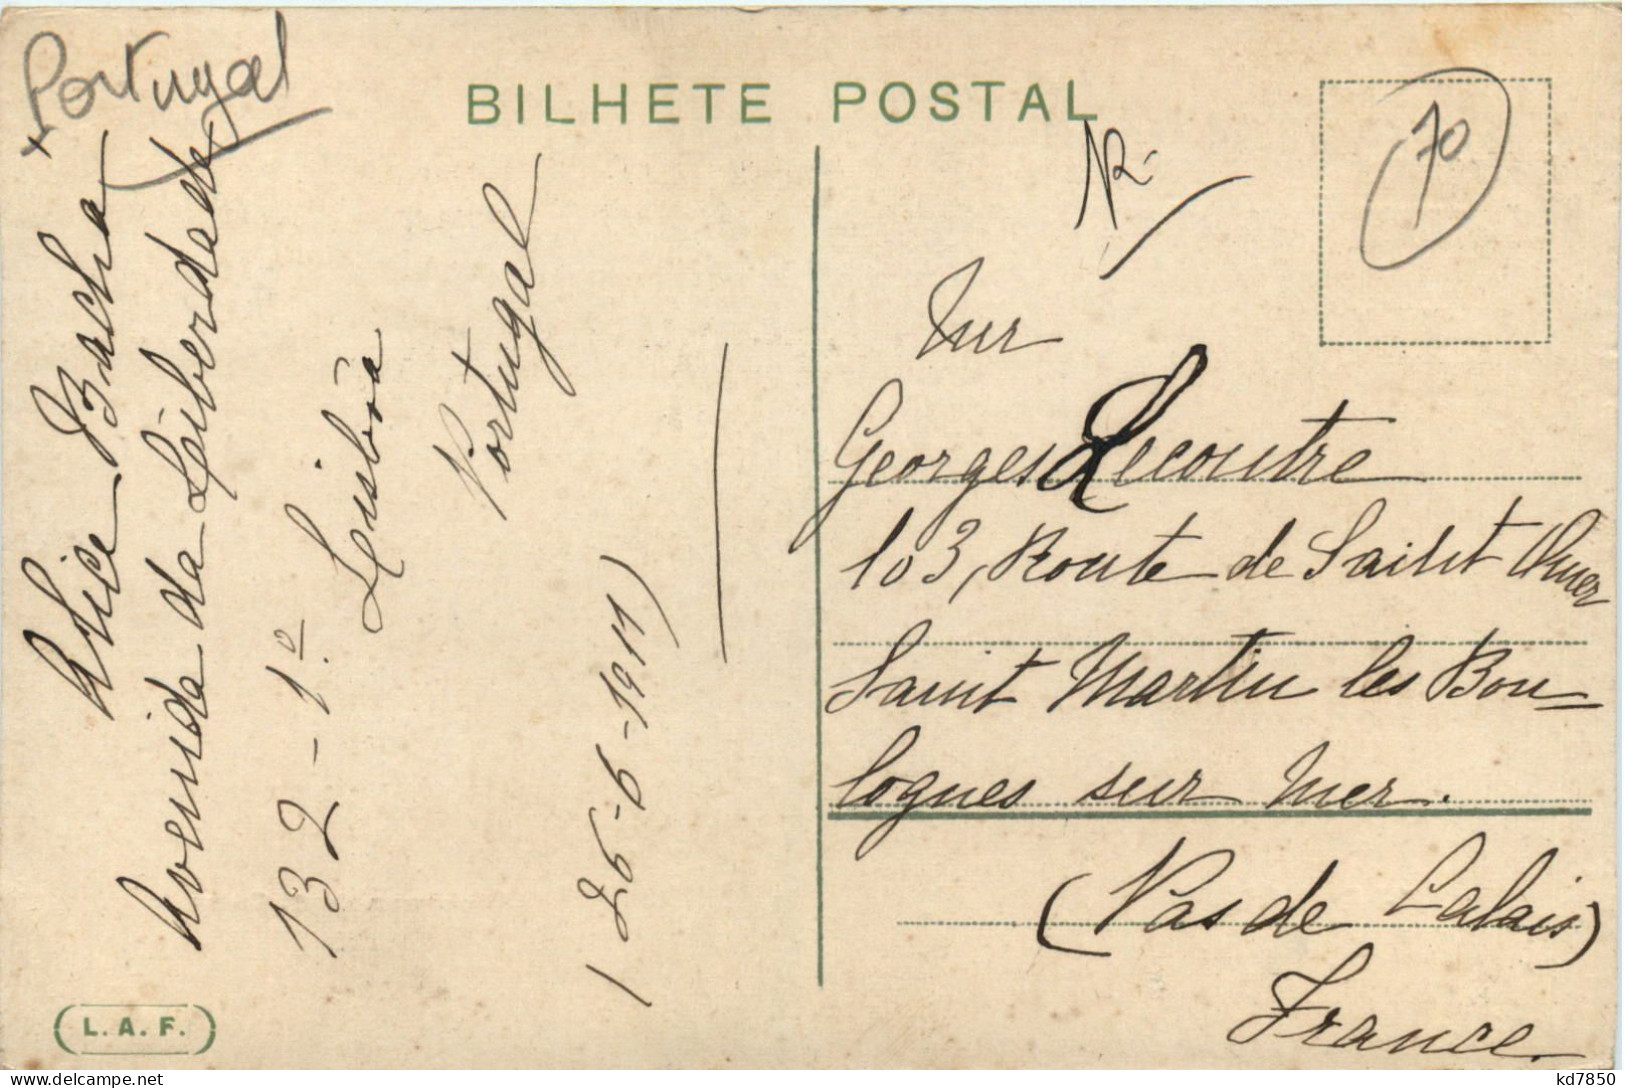 Portugal
BILHETE POSTAL
70
Alice Bacha
Avenida da Leiberdade
132-1º
Leisbôa
Portugal
(26-6-1911)
L. A. F.
Mr
Georges Lecoutre
103, Route de Saint Omer
Saint Martin les Bou-
lognes sur mer.
(Pas de Calais)
France.
kd7850